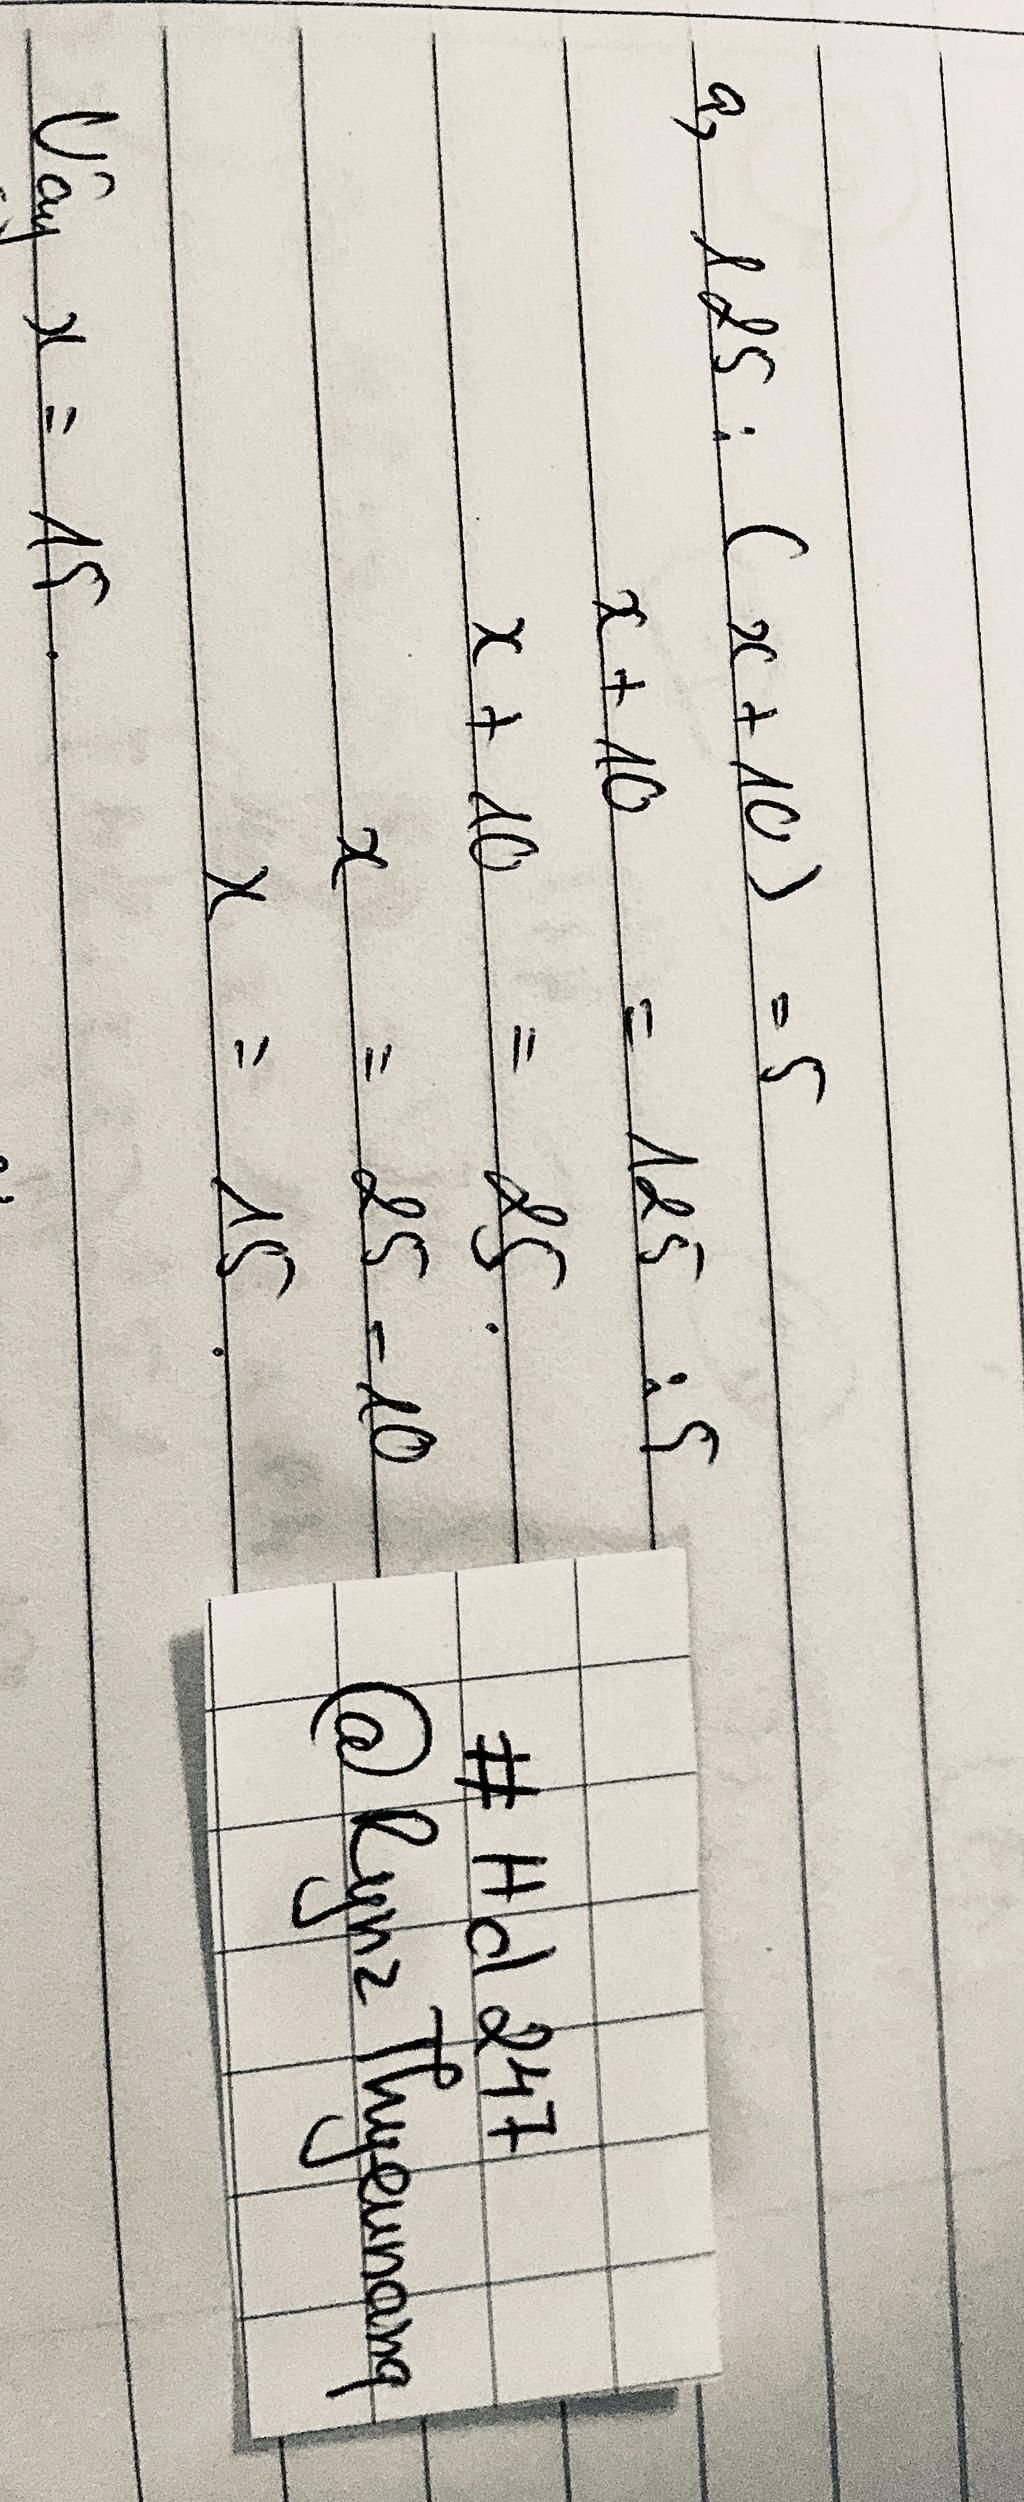 a, 125 : (x + 10) = 5
x + 10 = 125 : 5
x + 10 = 25.
x = 25 - 10
x = 15.
Vậy x = 15.
# Hd 247
@ lynz Thyeunanq